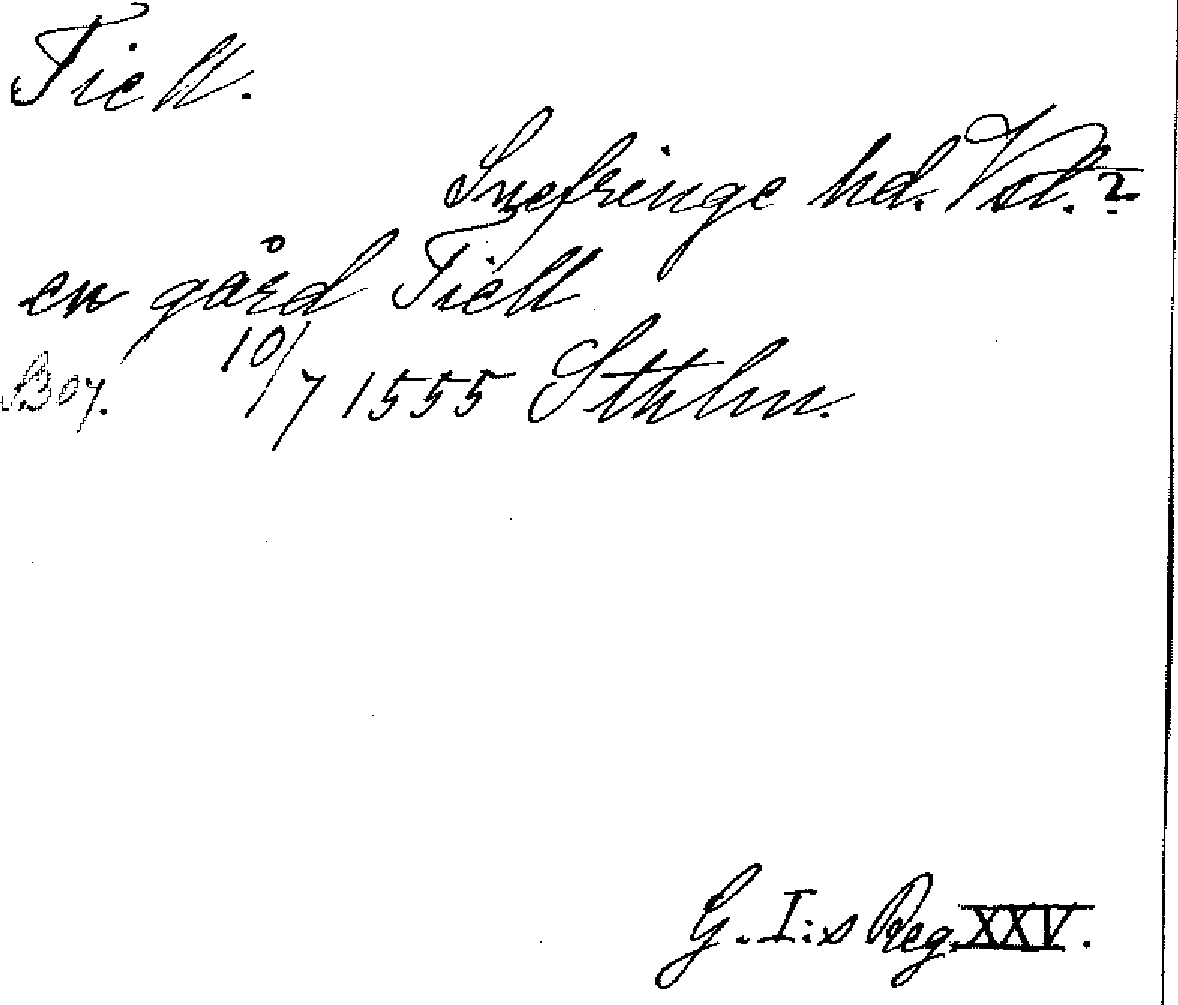 Tiell.
Snefringe hd. Vstl. ?
en gård Tiell
S. 307. 10/7 1555 Sthlm.
G. I:s Reg. XXV.